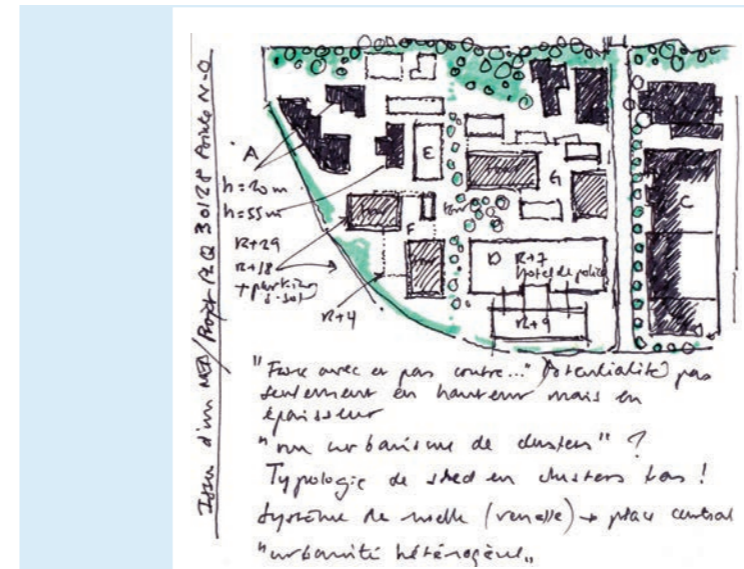 Issu d'un MEP/Projet PLQ 30128 Pointe N-O
A
h=20m
h=55m
R+29
R+18
+ parking
s-sol
R+4
E
F
G
C
D R+7
Hotel de police
R+9
"Faire avec et pas contre..." Potentialité pas
seulement en hauteur mais en
épaisseur
"un urbanisme de clusters" ?
Typologie de shed en clusters bas !
Système de ruelle (venelle) → place central
"urbanité hétérogène"